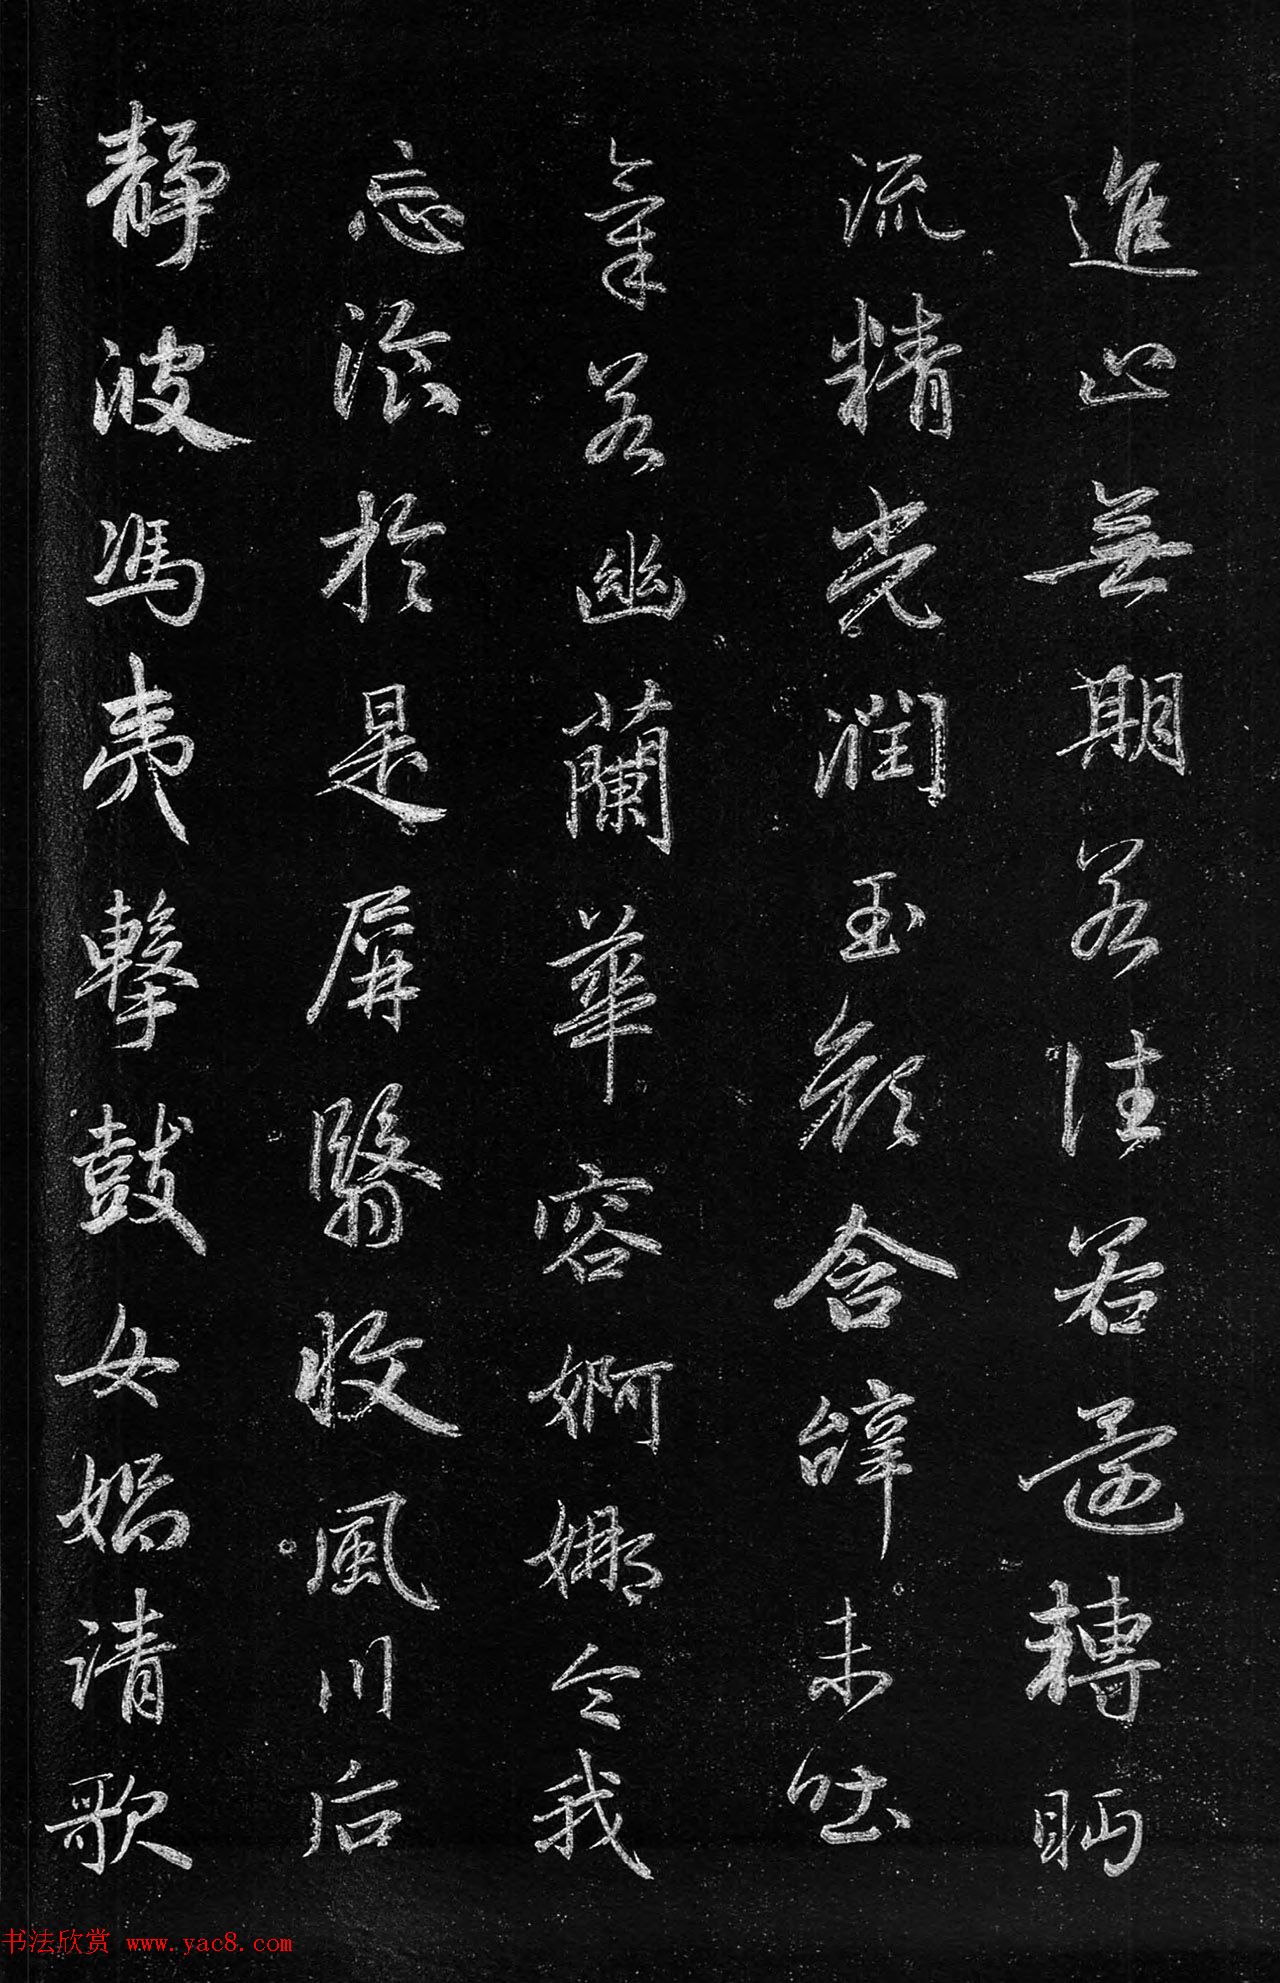 進止無期若往若還轉眄
流精光潤玉顏含辭未吐
氣若幽蘭華容婀娜令我
忘飡於是屏翳收風川后
靜波馮夷擊鼓女媧清歌
书法欣赏 www.yac8.com